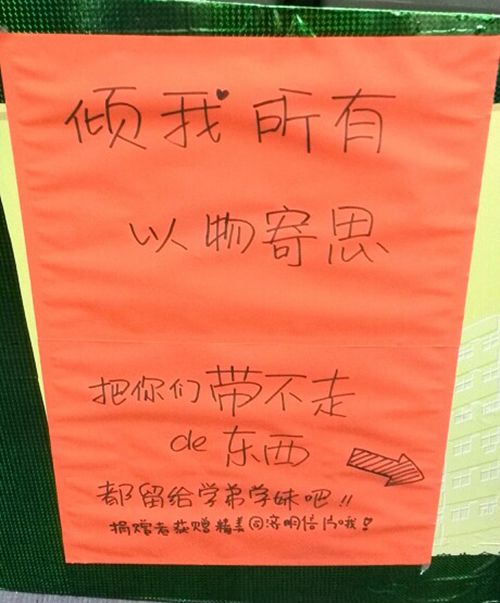 倾我所有
以物寄思
把你们带不走
de东西
都留给学弟学妹吧!!
捐赠者获赠精美同济明信片哦!